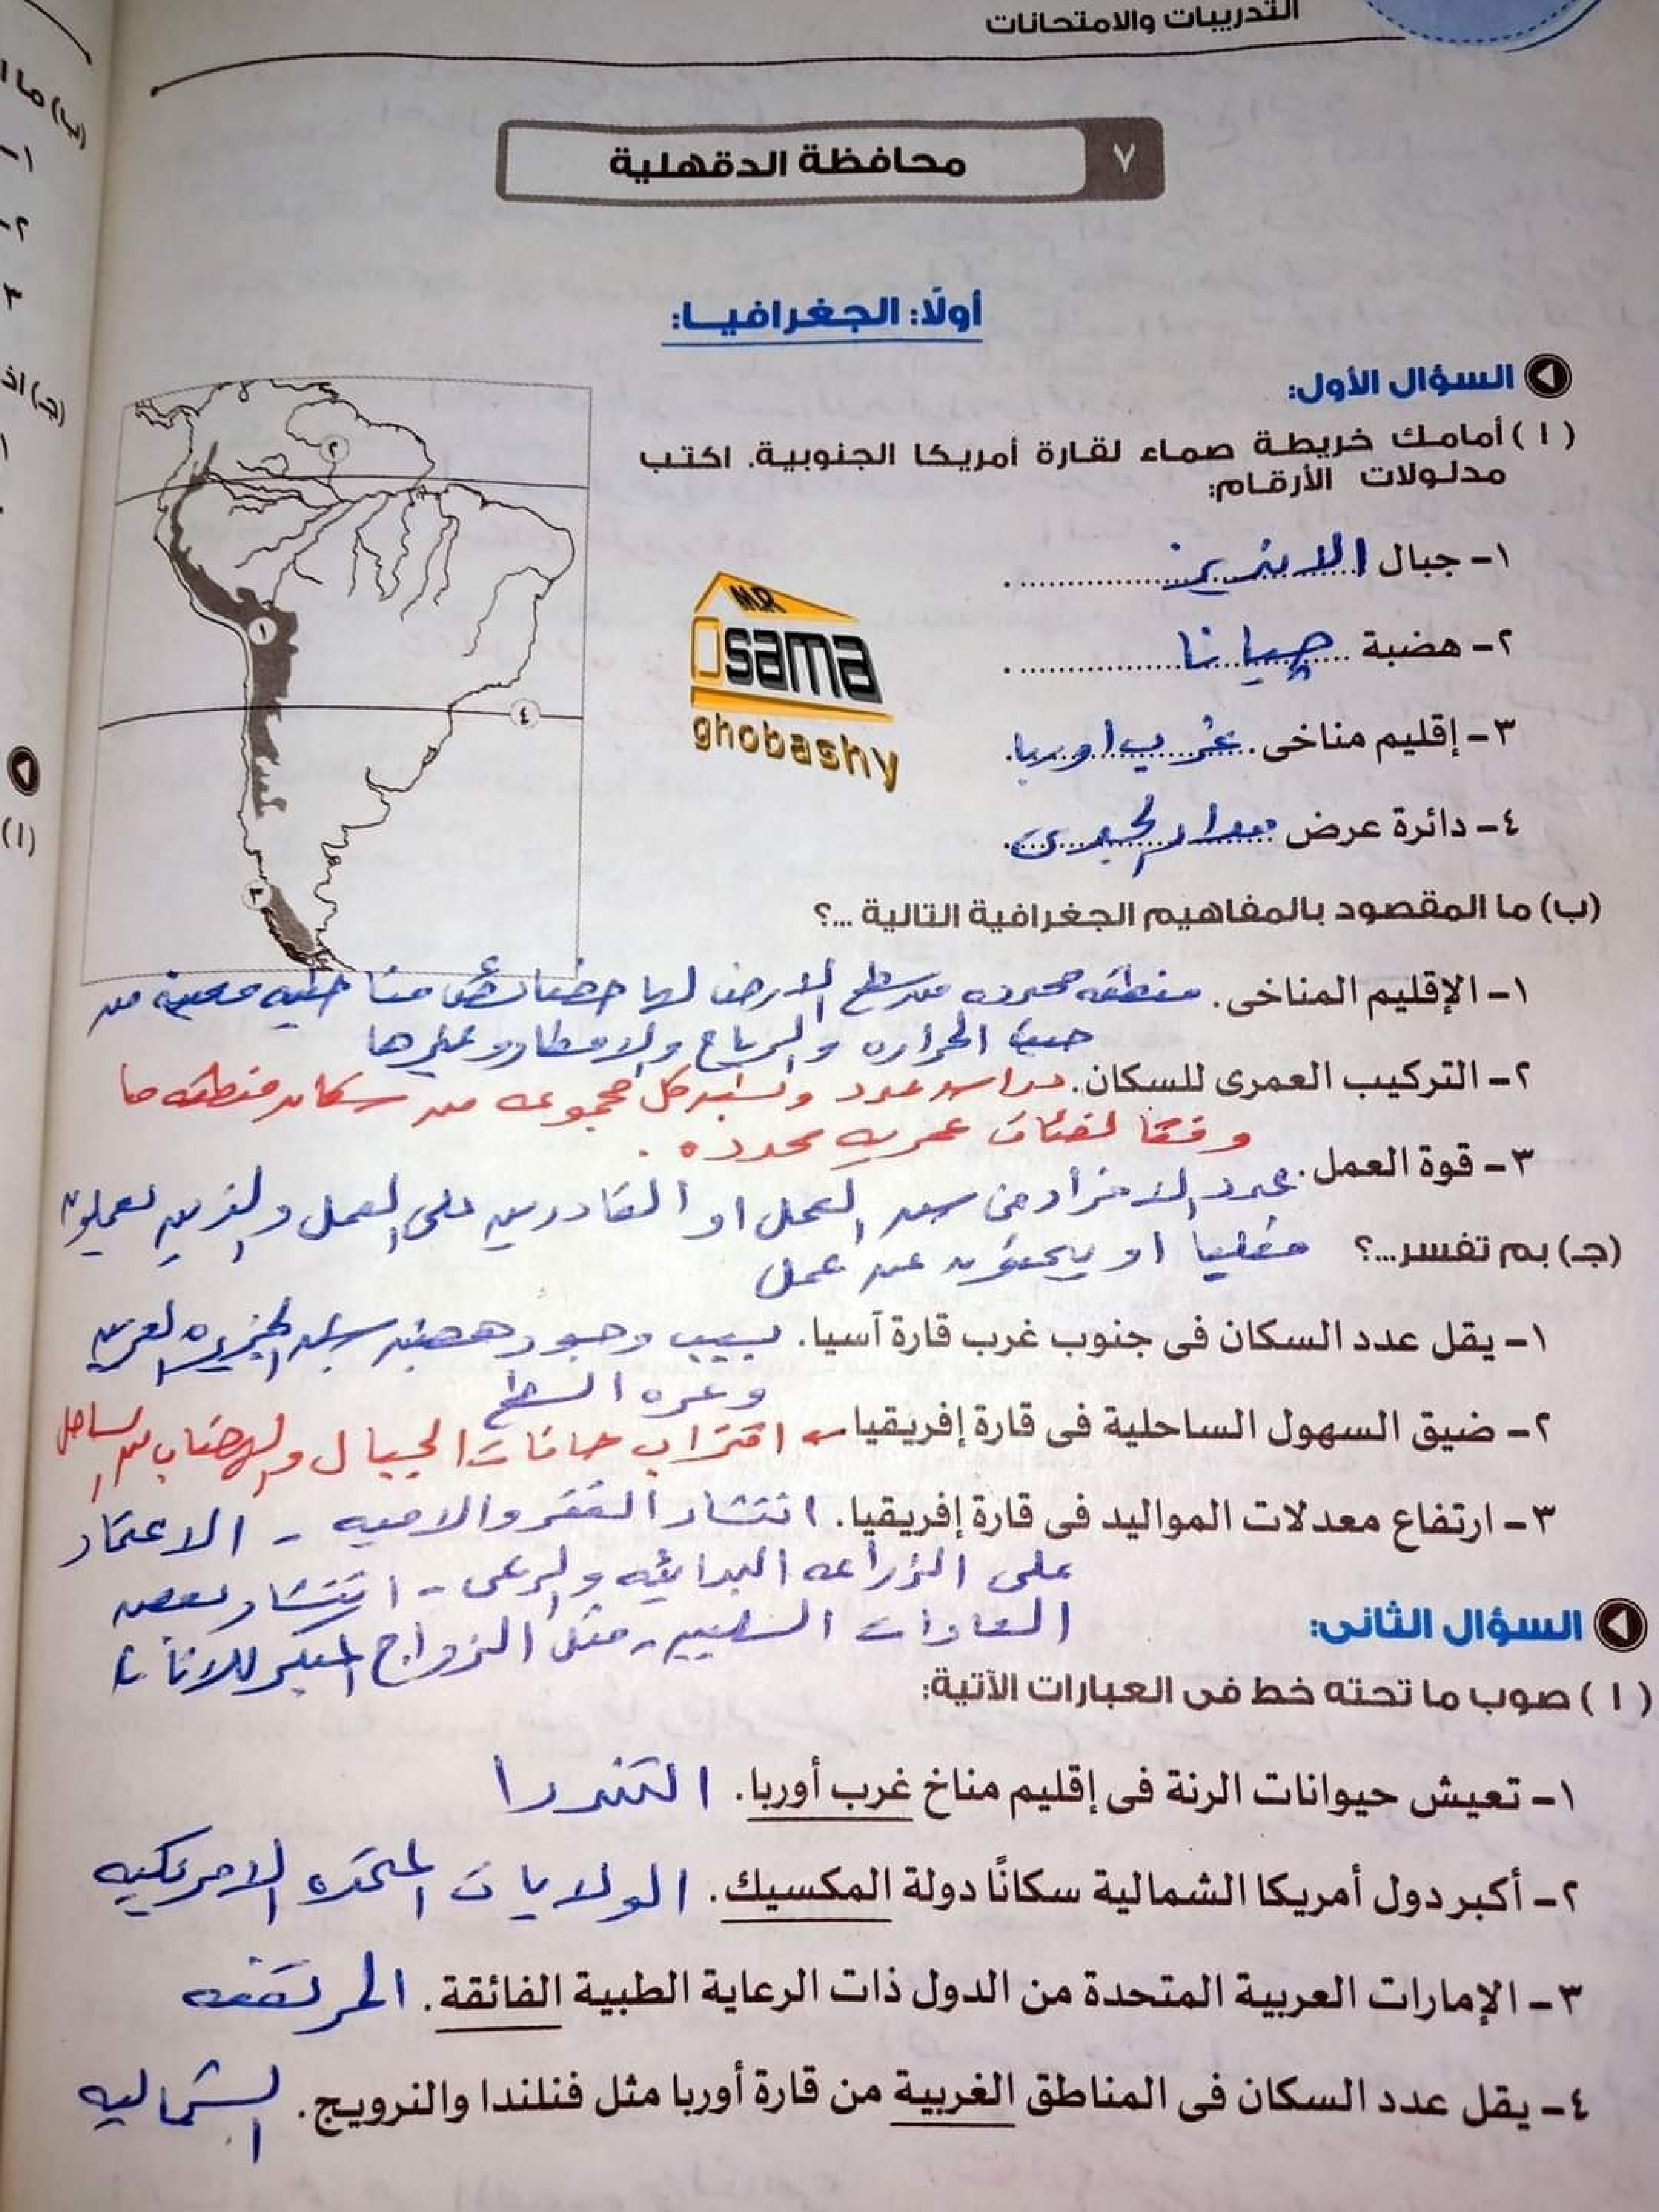 التدريبات والامتحانات
٧ محافظة الدقهلية
أولًا: الجغرافيا:
السؤال الأول:
( ا ) أمامك خريطة صماء لقارة أمريكا الجنوبية. اكتب
مدلولات الأرقام:
١- جبال الانديز
٢- هضبة جيانا
٣- إقليم مناخى غرب اوربا
٤- دائرة عرض مدار الجدى
٢
١
٤
٣
MR
Osama
ghobashy
(ب) ما المقصود بالمفاهيم الجغرافية التالية ...؟
١- الإقليم المناخى. منطقه محدده من سطح الارض لها خصائص مناخيه معينة من
حيث الحراره والرياح والامطار وغيرها
٢- التركيب العمرى للسكان. دراسه عدد ونسبه كل مجموعه من سكان منطقه ما
وفقا لفئات عمريه محدده .
٣- قوة العمل. عدد الافراد فى سن العمل او القادرين على العمل والذين يعملون
فعليا او يبحثون عن عمل
(جـ) بم تفسر...؟
١- يقل عدد السكان فى جنوب غرب قارة آسيا. بسبب وجود هضبه شبه الجزيره العربيه
وعره السطح
٢- ضيق السهول الساحلية فى قارة إفريقيا اقتراب حافات الجبال والهضاب من الساحل
٣- ارتفاع معدلات المواليد فى قارة إفريقيا. انتشار الفقر والاميه - الاعتماد
على الزراعه البدائيه والرعى - انتشار بعض
العادات السلبيه مثل الزواج المبكر للاناث
السؤال الثانى:
( ا ) صوب ما تحته خط فى العبارات الآتية:
١- تعيش حيوانات الرنة فى إقليم مناخ غرب أوربا. التندرا
٢- أكبر دول أمريكا الشمالية سكانًا دولة المكسيك. الولايات المتحده الامريكيه
٣- الإمارات العربية المتحدة من الدول ذات الرعاية الطبية الفائقة. المرتفعه
٤- يقل عدد السكان فى المناطق الغربية من قارة أوربا مثل فنلندا والنرويج. الشماليه
(ب) ما
١-
٢-
٣
(جـ) اذ
١
(ا)